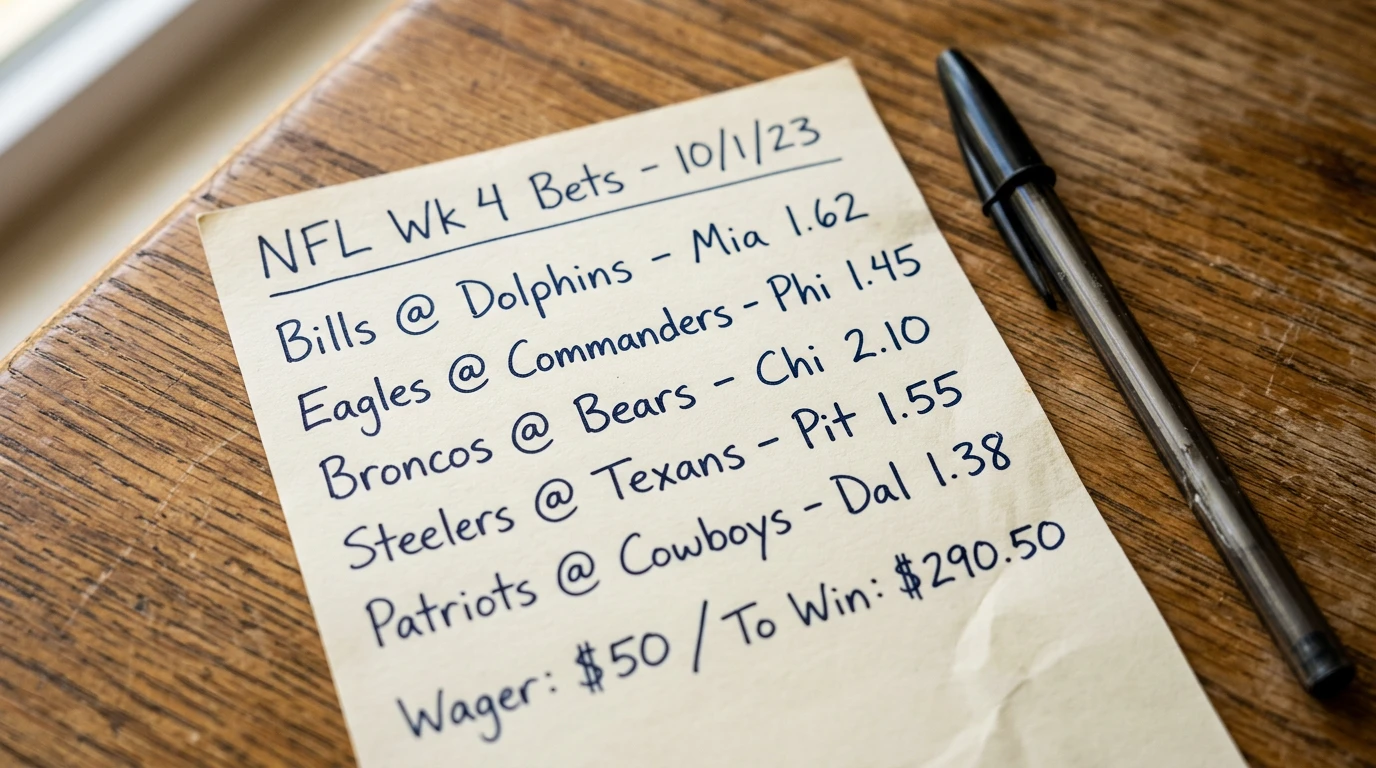 NFL Wk 4 Bets - 10/1/23
Bills @ Dolphins - Mia 1.62
Eagles @ Commanders - Phi 1.45
Broncos @ Bears - Chi 2.10
Steelers @ Texans - Pit 1.55
Patriots @ Cowboys - Dal 1.38
Wager: $50 / To Win: $290.50